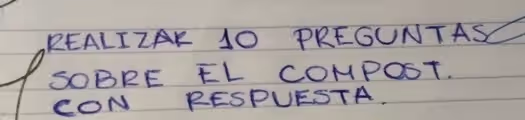 REALIZAR 10 PREGUNTAS
SOBRE EL COMPOST.
CON RESPUESTA.